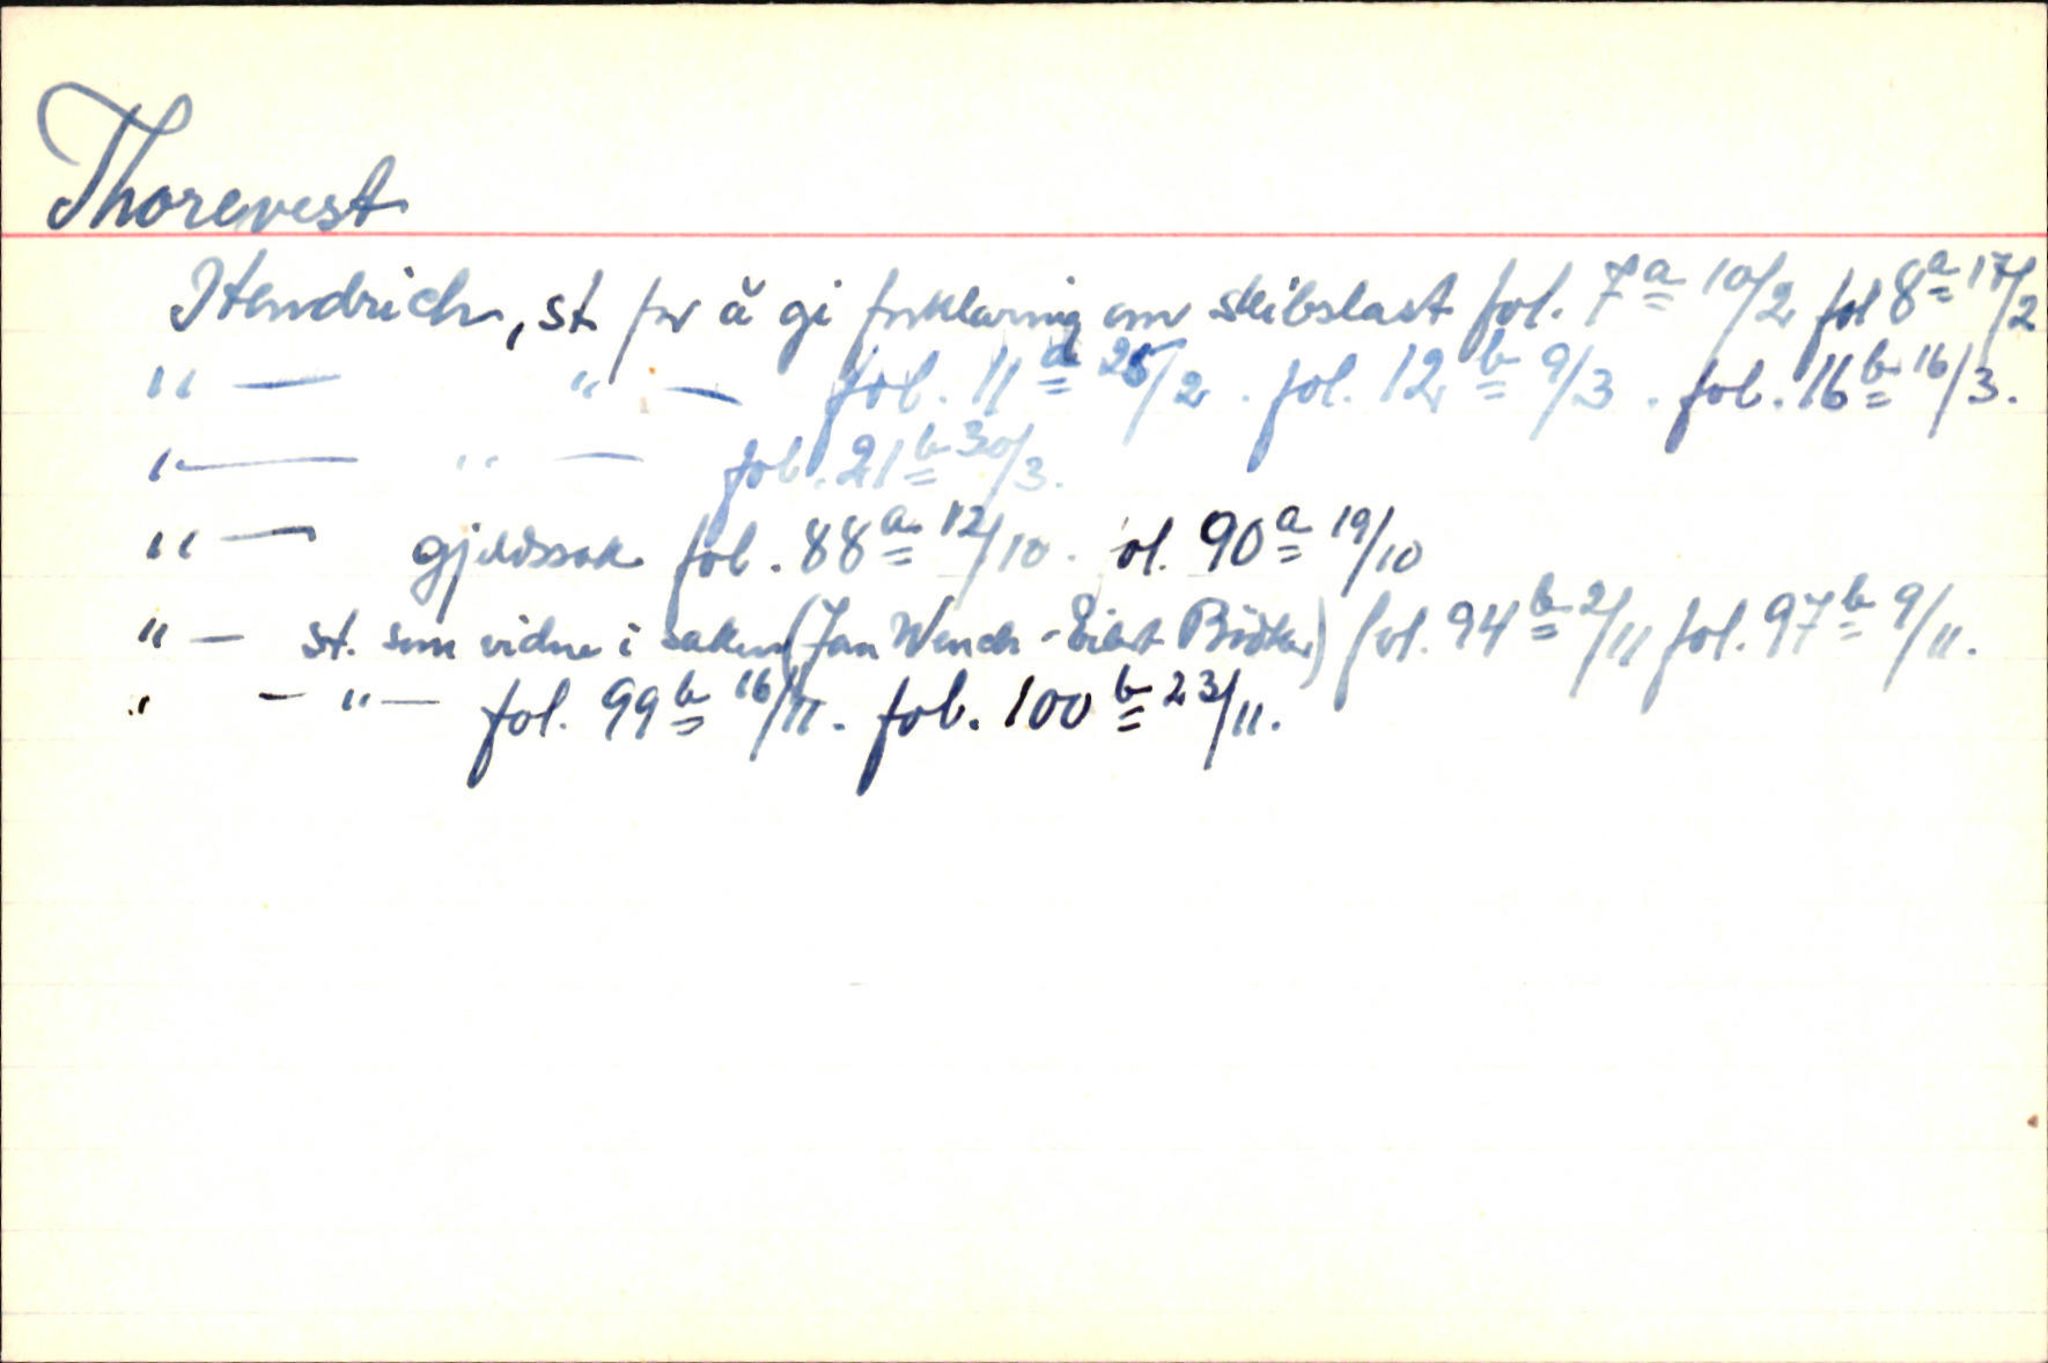 Thorevest
Hendrich, st. for å gi forklaring om skibslast fol. 7a 10/2 fol 8a 17/2
" — " — fol. 11a 25/2. fol. 12b 9/3. fol. 16b 16/3.
" — " — fol. 21b 30/3.
" — gjeldssak fol. 88a 12/10. ol. 90a 19/10
" — st. som vidne i saken (Jan Wench - Eilert Bödker) fol. 94b 2/11 fol. 97b 9/11.
" — " — fol. 99b 16/11. fol. 100b 23/11.